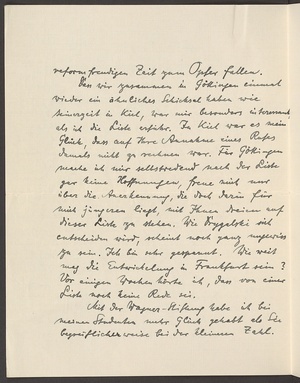 reformfreudigen Zeit zum Opfer fallen.
Dass wir zusammen in Göttingen einmal
wieder ein ähnliches Schicksal haben wie
seinerzeit in Kiel, war mir besonders interessant
als ich die Liste erfuhr. In Kiel war es mein
Glück, dass auf Ihre Annahme eines Rufes
damals nicht zu rechnen war. Für Göttingen
mache ich mir selbstredend nach der Liste
gar keine Hoffnungen, freue mich nur
über die Anerkennung, die doch darin für
mich jüngeren liegt, mit Ihnen dreien auf
dieser Liste zu stehen. Wie Drygalski sich
entscheiden wird, scheint noch ganz ungewiss
zu sein. Ich bin sehr gespannt. Wie weit
mag die Entwickelung in Frankfurt sein?
Vor einigen Wochen hörte ich, dass von einer
Liste noch keine Rede sei.
Mit der Wagner-Stiftung habe ich bei
meinen Studenten mehr Glück gehabt als Sie
begreiflicherweise bei der kleinen Zahl.